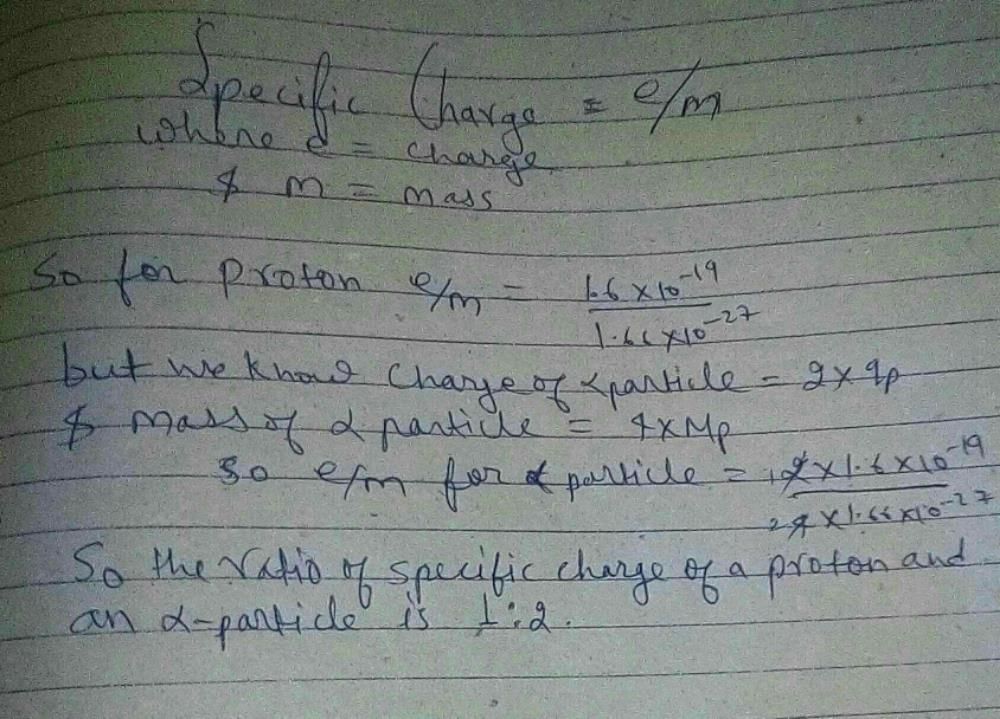 Specific Charge = e/m
where e = charge
$ m = mass
So for proton e/m = 1.6 × 10⁻¹⁹ / 1.66 × 10⁻²⁷
but we know charge of α particle = 2 × qp
$ mass of α particle = 4 × Mp
so e/m for α particle = 1 2 × 1.6 × 10⁻¹⁹ / 2 4 × 1.66 × 10⁻²⁷
So the ratio of specific charge of a proton and
an α-particle is 1:2.